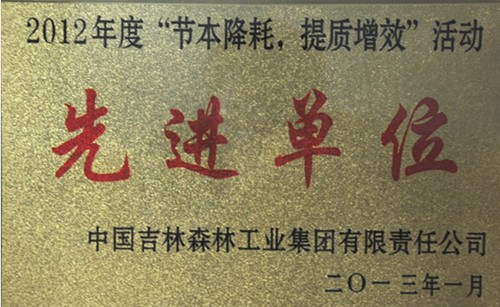 2012年度“节本降耗，提质增效”活动
先进单位
中国吉林森林工业集团有限责任公司
二〇一三年一月